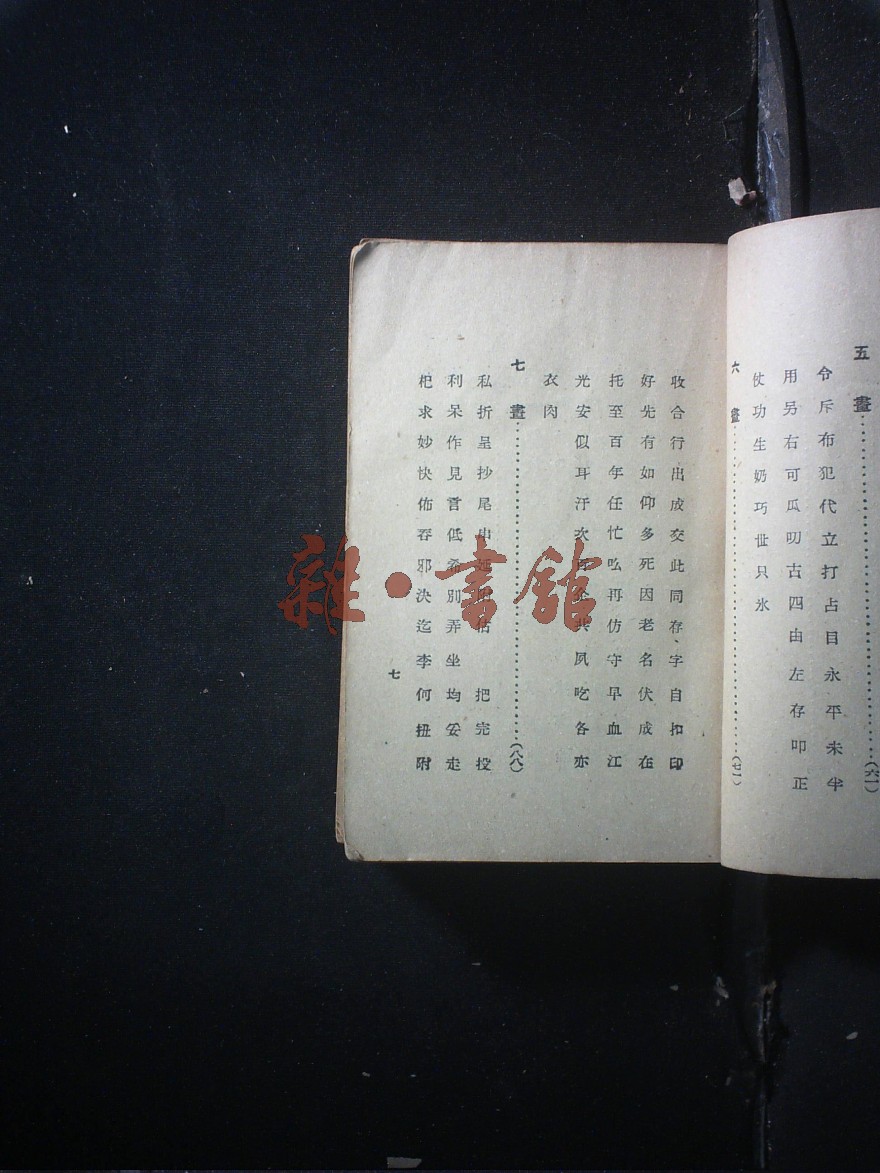 五畫……………………………(六一)
令斥布犯代立打占目永平未半
用另右可瓜叨古四由左存叩正
仗功生奶巧世只氷
六畫……………………………(七一)
收合行出成交此同存、字自扣印
好先有如仰多死因老名伏成在
托至百年任忙吆再仿守早血江
光安似耳汙次共夙吃各亦
衣肉
七畫……………………………(八八)
私折呈抄尾估把完投
利呆作見言低希別弄坐均妥走
杷求妙快佈吞邪決迄李何扭附
七
雜·書館